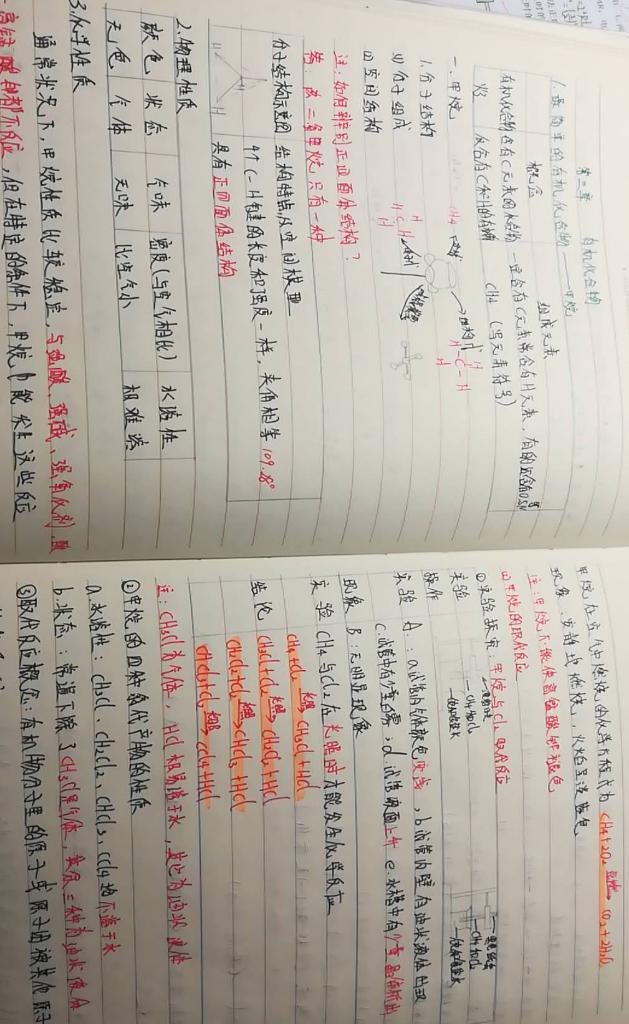 第三章 有机化合物
1.最简单的有机化合物——甲烷
概念 组成元素
有机化合物 含有C元素的化合物 一定含有C元素,常含有H元素,有的还含有O.S.N等
烃 仅含有C和H的有机物 CH4 (写元素符号)
一.甲烷
1.分子结构
(1)分子组成
(2)空间结构
注:如何辨别正四面体结构?
答:其二氯甲烷只有一种
分子结构示意图 结构特点及空间模型
4个C-H键的长度和强度一样,夹角相等109.28°
具有正四面体结构
2.物理性质
颜色 状态 气味 密度(与空气相比) 水溶性
无色 气体 无味 比空气小 极难溶
3.化学性质
通常状况下,甲烷性质比较稳定,与强酸、强碱、强氧化剂,
高锰酸钾都不反应,但在特定的条件下,甲烷也能发生这些反应
甲烷在空气中燃烧的化学方程式为 CH4+2O2 点燃→ CO2+2H2O
现象:安静地燃烧,火焰呈淡蓝色
注:甲烷不能使高锰酸钾褪色
(2)甲烷的取代反应
①实验探究:甲烷与Cl2取代反应
实验
操作
实验 A:a.试管内气体颜色变浅,b.试管内壁有油状液体出现,
c.试管中有少量白雾,d.试管液面上升 e.水槽中有少量晶体析出
现象 B:无明显现象
实验 CH4与Cl2在光照时才能发生化学反应
结论 CH4+Cl2 光照→ CH3Cl+HCl
CH3Cl+Cl2 光照→ CH2Cl2+HCl
CH2Cl2+Cl2 光照→ CHCl3+HCl
CHCl3+Cl2 光照→ CCl4+HCl
注:CH3Cl为气体,HCl极易溶于水,其他为油状液体
②甲烷的四种氯代产物的性质
a.水溶性:CH3Cl、CH2Cl2、CHCl3、CCl4均不溶于水
b.状态:常温下除了CH3Cl是气体,其余三种为油状液体
③取代反应概念:有机物分子里的原子或原子团被其他原子